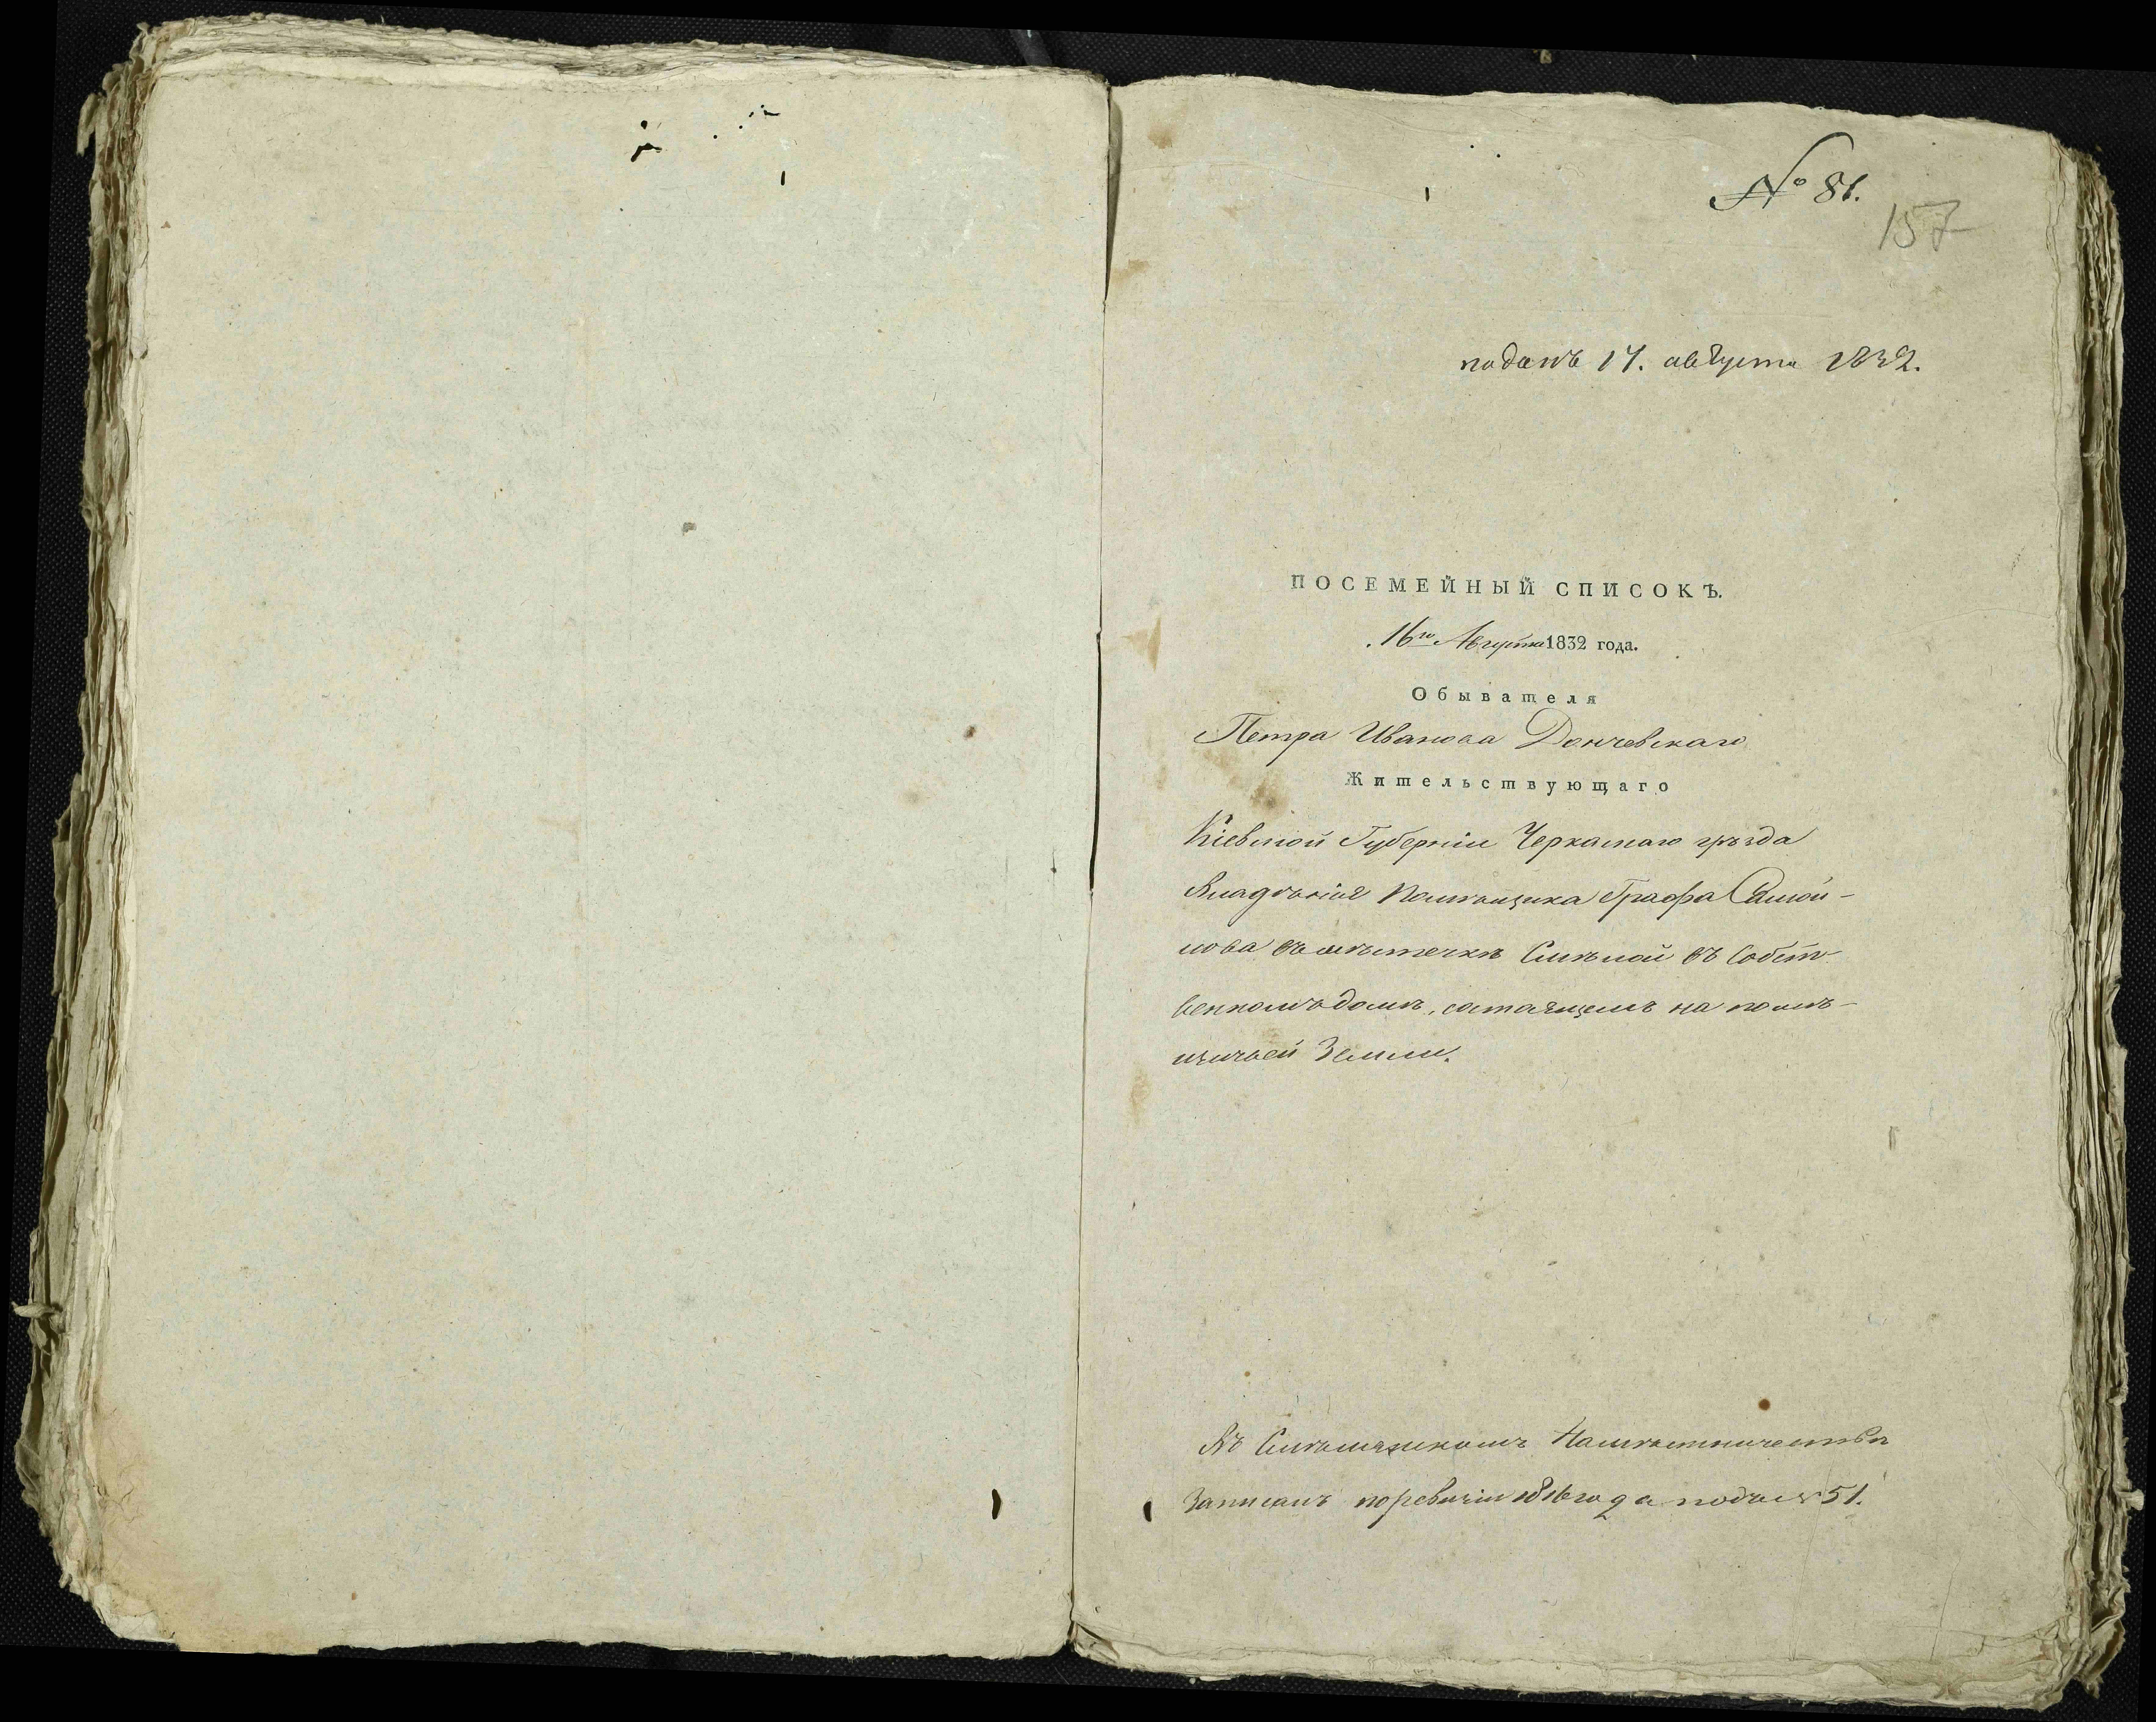 № 81.
157
поданъ 17. августа 1832.
ПОСЕМЕЙНЫЙ СПИСОКЪ.
16го Августа 1832 года.
Обывателя
Петра Иванова Дончевскаго
Жительствующаго
Кіевской Губерніи Черкаскаго уѣзда
Владѣнія Помѣщика Графа Самой-
лова въ мѣстечкѣ Смѣлой въ Собст-
венномъ домѣ, состоящемъ на помѣ-
щичьей Земли.
Въ Смѣлянскомъ Намѣстничествѣ
Записанъ по ревизіи 1816 года подъ № 51.